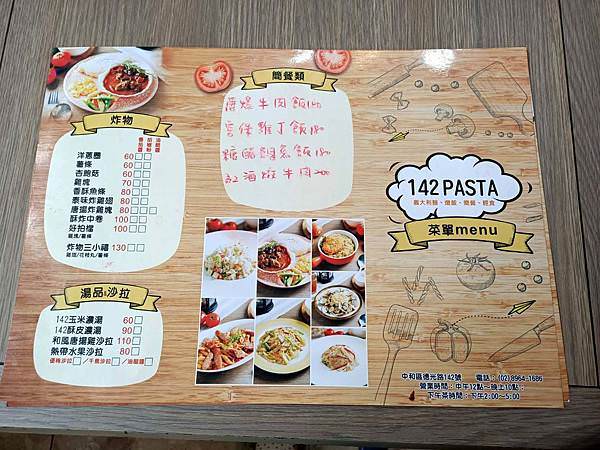 炸物
洋蔥圈 60
薯條 60
杏鮑菇 60
雞塊 70
香酥魚條 80
泰味炸雞翅 80
唐揚炸雞塊 80
酥炸中卷 100
好拍檔 100
雞塊/薯條
炸物三小福 130
雞塊/花枝丸/薯條
湯品&沙拉
142玉米濃湯 60
142酥皮濃湯 90
和風唐揚雞沙拉 110
熱帶水果沙拉 80
優格沙拉 / 千島沙拉 / 油醋醬
簡餐類
糖醋鯛魚飯180
142 PASTA
義大利麵、燉飯、簡餐、輕食
菜單menu
中和區德光路142號 電話:(02)8964-1686
營業時間:中午12點~晚上10點
下午茶時間:下午2:00~5:00